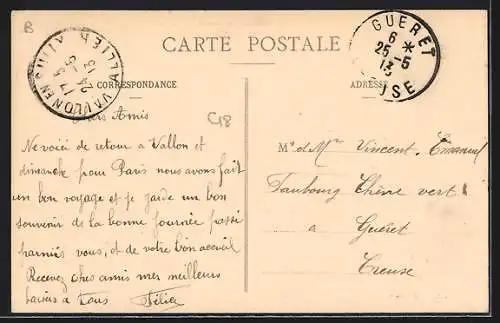 B
CARTE POSTALE
GUERET
6 *
25-5
13
CREUSE
VALLON EN SULLY
ALLIER
17
24-5
13
CORRESPONDANCE
ADRESSE
C18
Chers Amis
Me voici de retour a Vallon et
dimanche pour Paris nous avons fait
un bon voyage et je garde un bon
souvenir de la bonne journée passé
parmiés vous, et de votre bon accueil
Recevez chers amis mes meilleurs
baisers a Tous Félix
Mr et Mme Vincent. Emanuel
Faubourg Chêne vert
a Guéret
Creuse